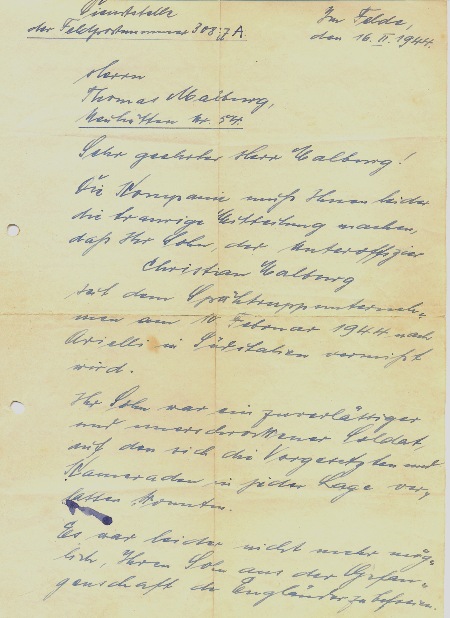 Dienststelle
der Feldpostnummer 308 7 A.
Im Felde,
den 16. II. 1944.
Herrn
Thomas Malburg,
Neuhütten Nr. 54.
Sehr geehrter Herr Malburg!
Die Kompanie muß Ihnen leider
die traurige Mitteilung machen,
daß Ihr Sohn, der Unteroffizier
Christian Malburg
seit dem Spähtruppunterneh-
men am 10. Februar 1944 nach
Arielli in Süditalien vermißt
wird.
Ihr Sohn war ein zuverlässiger
und unerschrockener Soldat,
auf den sich die Vorgesetzten und
Kameraden in jeder Lage ver-
lassen konnten.
Es war leider nicht mehr mög-
lich, Ihren Sohn aus der Gefan-
genschaft der Engländer zu befreien.